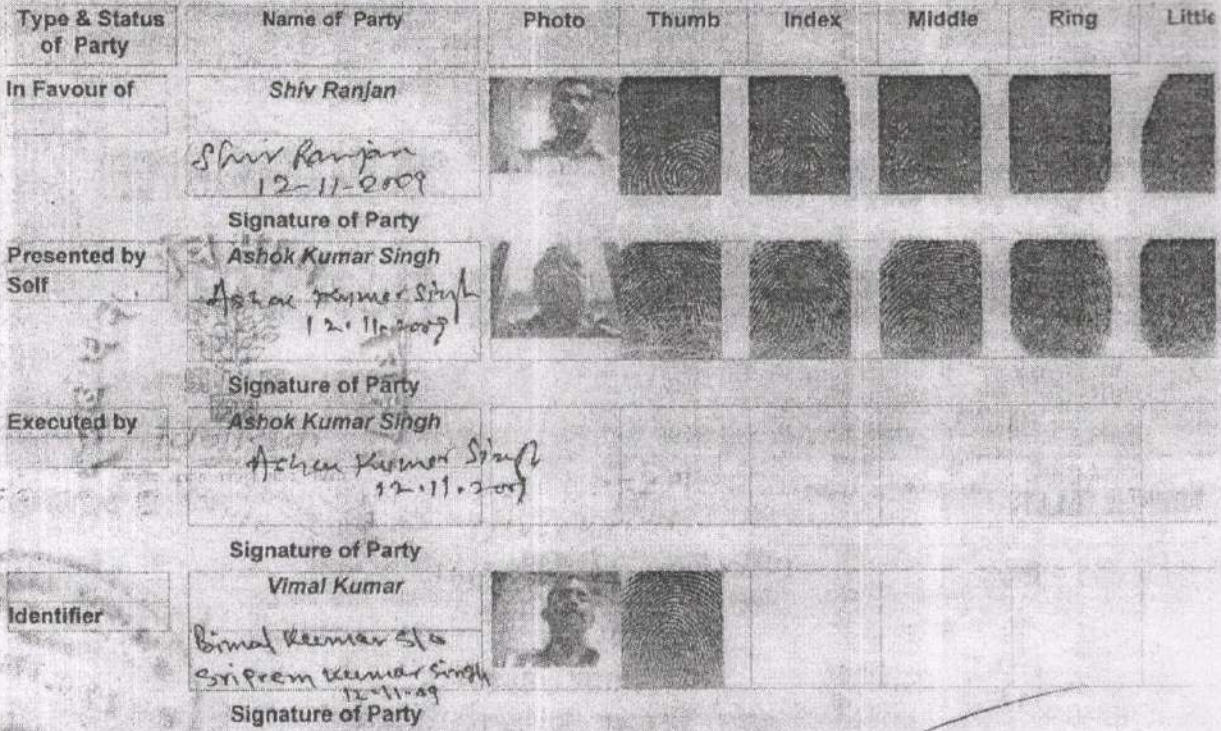 Type & Status of Party
Name of Party
Photo
Thumb
Index
Middle
Ring
Little
In Favour of
Shiv Ranjan
Shiv Ranjan
12-11-2009
Signature of Party
Presented by
Self
Ashok Kumar Singh
Ashok Kumar Singh
12.11.2009
Signature of Party
Executed by
Ashok Kumar Singh
Ashok Kumar Singh
12.11.2009
Signature of Party
Identifier
Vimal Kumar
Bimal Kumar S/o
Sri Prem Kumar Singh
12-11-09
Signature of Party